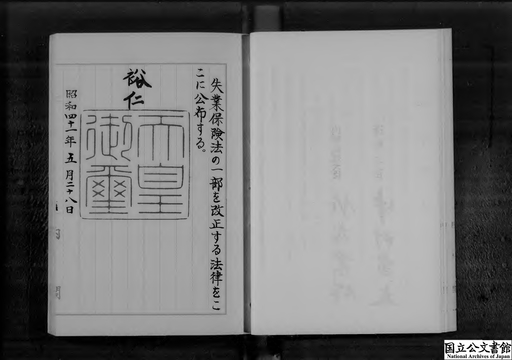 失業保険法の一部を改正する法律をこ
こに公布する。
裕仁
天皇
御璽
昭和四十一年五月二十八日
国立公文書館
National Archives of Japan